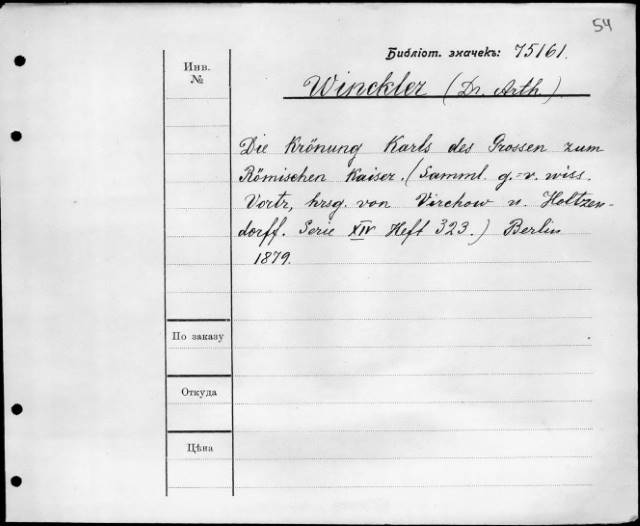 54
Библіот. значекъ: 75161.
Инв.
№
Winckler (Dr. Arth)
Die Krönung Karls des Grossen zum
Römischen Kaiser. (Samml. g.=v. wiss.
Vortr, hrsg. von Virchow u. Holtzen-
dorff. Serie XIV Heft 323.) Berlin
1879.
По заказу
Откуда
Цѣна